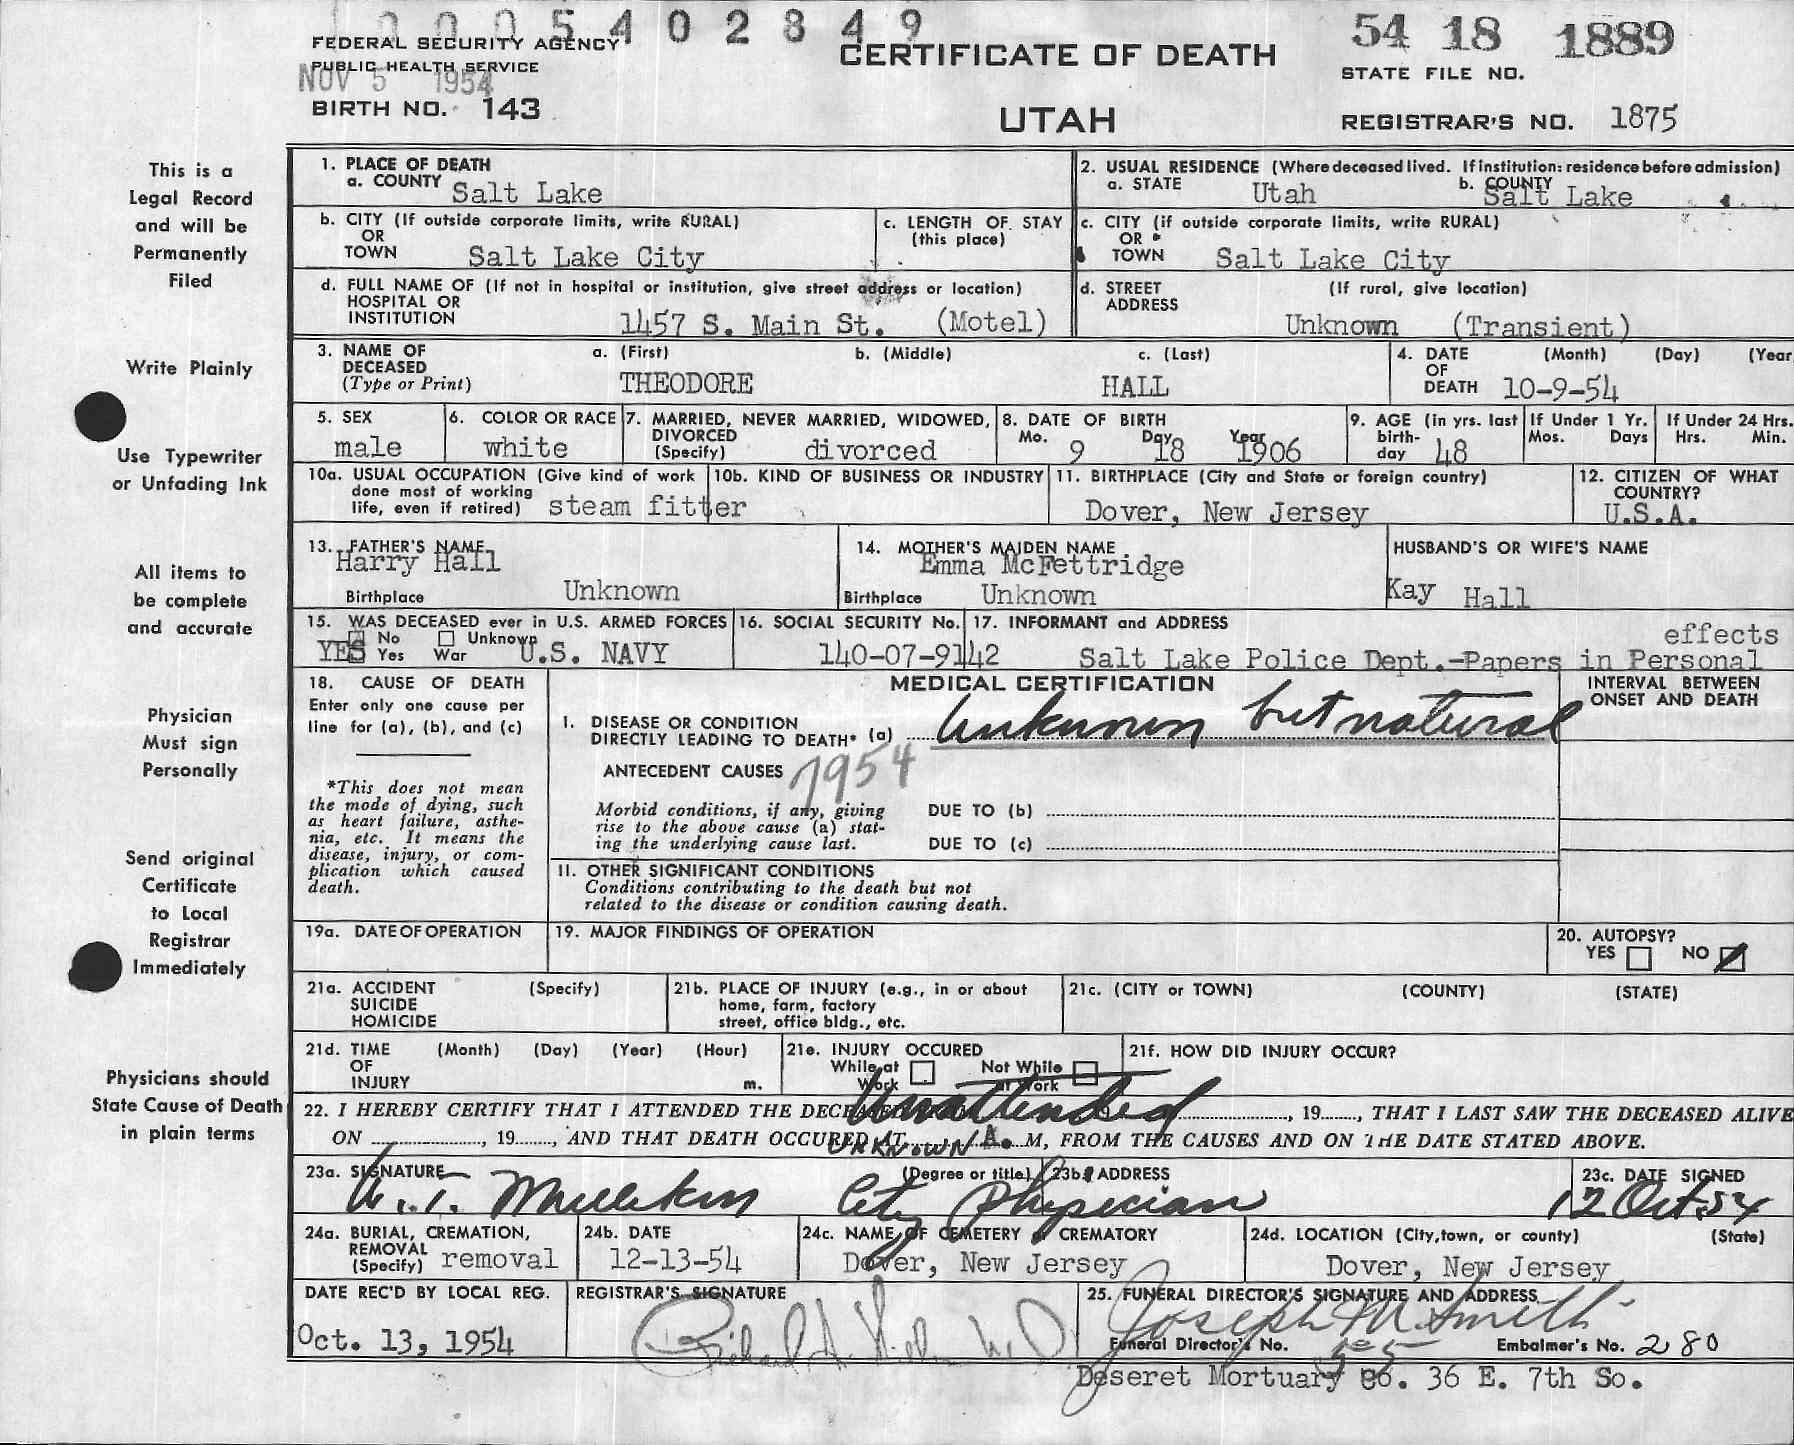 0005402849
FEDERAL SECURITY AGENCY
PUBLIC HEALTH SERVICE
NOV 5 1954
BIRTH NO. 143
CERTIFICATE OF DEATH
UTAH
54 18 1889
STATE FILE NO.
REGISTRAR'S NO. 1875
This is a
Legal Record
and will be
Permanently
Filed
Write Plainly
Use Typewriter
or Unfading Ink
All items to
be complete
and accurate
Physician
Must sign
Personally
Send original
Certificate
to Local
Registrar
Immediately
Physicians should
State Cause of Death
in plain terms
1. PLACE OF DEATH
a. COUNTY Salt Lake
2. USUAL RESIDENCE (Where deceased lived. If institution: residence before admission)
a. STATE Utah b. COUNTY Salt Lake
b. CITY (If outside corporate limits, write RURAL)
OR
TOWN Salt Lake City
c. LENGTH OF STAY
(this place)
c. CITY (if outside corporate limits, write RURAL)
OR
TOWN Salt Lake City
d. FULL NAME OF (If not in hospital or institution, give street address or location)
HOSPITAL OR
INSTITUTION 1457 S. Main St. (Motel)
d. STREET (If rural, give location)
ADDRESS
Unknown (Transient)
3. NAME OF a. (First) b. (Middle) c. (Last)
DECEASED
(Type or Print) THEODORE HALL
4. DATE (Month) (Day) (Year
OF
DEATH 10-9-54
5. SEX
male
6. COLOR OR RACE
white
7. MARRIED, NEVER MARRIED, WIDOWED,
DIVORCED
(Specify) divorced
8. DATE OF BIRTH
Mo. Day Year
9 18 1906
9. AGE (in yrs. last
birth-
day 48
If Under 1 Yr.
Mos. Days
If Under 24 Hrs.
Hrs. Min.
10a. USUAL OCCUPATION (Give kind of work
done most of working
life, even if retired) steam fitter
10b. KIND OF BUSINESS OR INDUSTRY
11. BIRTHPLACE (City and State or foreign country)
Dover, New Jersey
12. CITIZEN OF WHAT
COUNTRY?
U.S.A.
13. FATHER'S NAME
Harry Hall
Birthplace Unknown
14. MOTHER'S MAIDEN NAME
Emma McFettridge
Birthplace Unknown
HUSBAND'S OR WIFE'S NAME
Kay Hall
15. WAS DECEASED ever in U.S. ARMED FORCES
No Unknown
YES Yes War U.S. NAVY
16. SOCIAL SECURITY No.
140-07-9142
17. INFORMANT and ADDRESS
effects
Salt Lake Police Dept.-Papers in Personal
18. CAUSE OF DEATH
Enter only one cause per
line for (a), (b), and (c)
*This does not mean
the mode of dying, such
as heart failure, asthe-
nia, etc. It means the
disease, injury, or com-
plication which caused
death.
MEDICAL CERTIFICATION
INTERVAL BETWEEN
ONSET AND DEATH
I. DISEASE OR CONDITION
DIRECTLY LEADING TO DEATH* (a) Unknown but natural
ANTECEDENT CAUSES 7954
Morbid conditions, if any, giving
rise to the above cause (a) stat-
ing the underlying cause last.
DUE TO (b)
DUE TO (c)
II. OTHER SIGNIFICANT CONDITIONS
Conditions contributing to the death but not
related to the disease or condition causing death.
19a. DATE OF OPERATION
19. MAJOR FINDINGS OF OPERATION
20. AUTOPSY?
YES NO
21a. ACCIDENT (Specify)
SUICIDE
HOMICIDE
21b. PLACE OF INJURY (e.g., in or about
home, farm, factory
street, office bldg., etc.
21c. (CITY or TOWN) (COUNTY) (STATE)
21d. TIME (Month) (Day) (Year) (Hour)
OF
INJURY m.
21e. INJURY OCCURED
While at Not While
Work at Work
21f. HOW DID INJURY OCCUR?
22. I HEREBY CERTIFY THAT I ATTENDED THE DECEASED Unattended, 19....., THAT I LAST SAW THE DECEASED ALIVE
ON ................, 19......, AND THAT DEATH OCCURED AT UNKNOWN A. M, FROM THE CAUSES AND ON THE DATE STATED ABOVE.
23a. SIGNATURE (Degree or title) 23b. ADDRESS
Millekin City Physician
23c. DATE SIGNED
12 Oct. 54
24a. BURIAL, CREMATION,
REMOVAL
(Specify) removal
24b. DATE
12-13-54
24c. NAME OF CEMETERY or CREMATORY
Dover, New Jersey
24d. LOCATION (City, town, or county) (State)
Dover, New Jersey
DATE REC'D BY LOCAL REG.
Oct. 13, 1954
REGISTRAR'S SIGNATURE
Richard A.
25. FUNERAL DIRECTOR'S SIGNATURE AND ADDRESS
Joseph M. Smith
Funeral Director's No. Embalmer's No. 280
Deseret Mortuary Co. 36 E. 7th So.